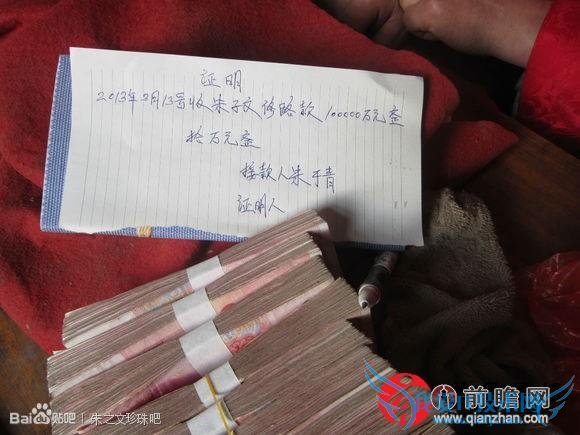 证明
2013年2月13号收朱子文修路款100000万元整
拾万元整
接款人朱于青
证明人
Bai du 贴吧 | 朱之文珍珠吧
前瞻网
www.qianzhan.com